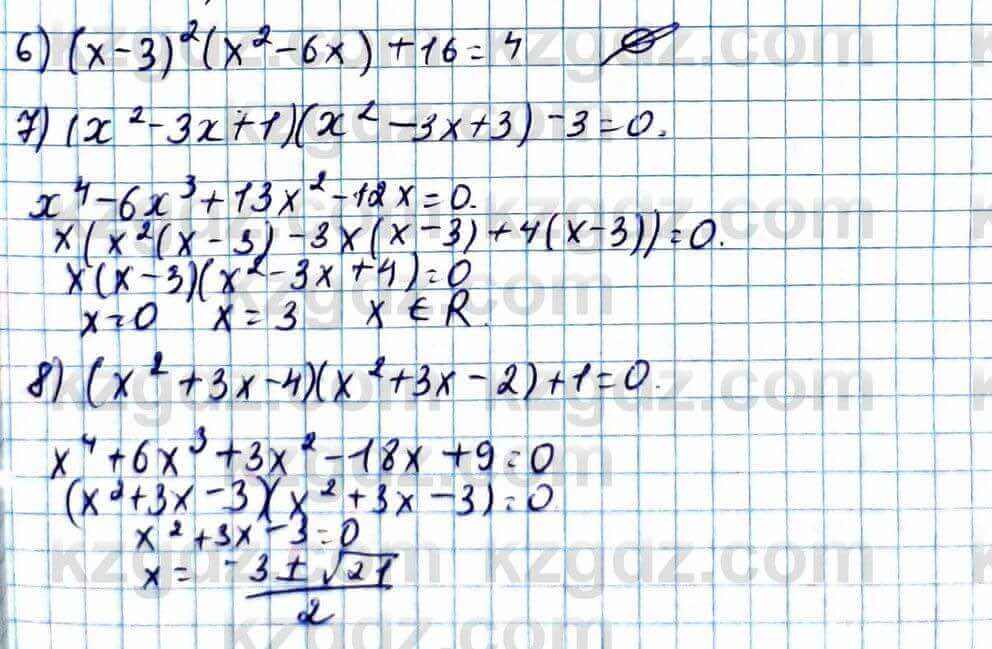 6) (x-3)²(x²-6x)+16=4
7) (x²-3x+1)(x²-3x+3)-3=0.
x⁴-6x³+13x²-12x=0.
x(x²(x-3)-3x(x-3)+4(x-3))=0.
x(x-3)(x²-3x+4)=0
x=0 x=3 x∈R.
8) (x²+3x-4)(x²+3x-2)+1=0.
x⁴+6x³+3x²-18x+9=0
(x²+3x-3)(x²+3x-3)=0
x²+3x-3=0
x= (-3±√21)/2
kzgdz.com